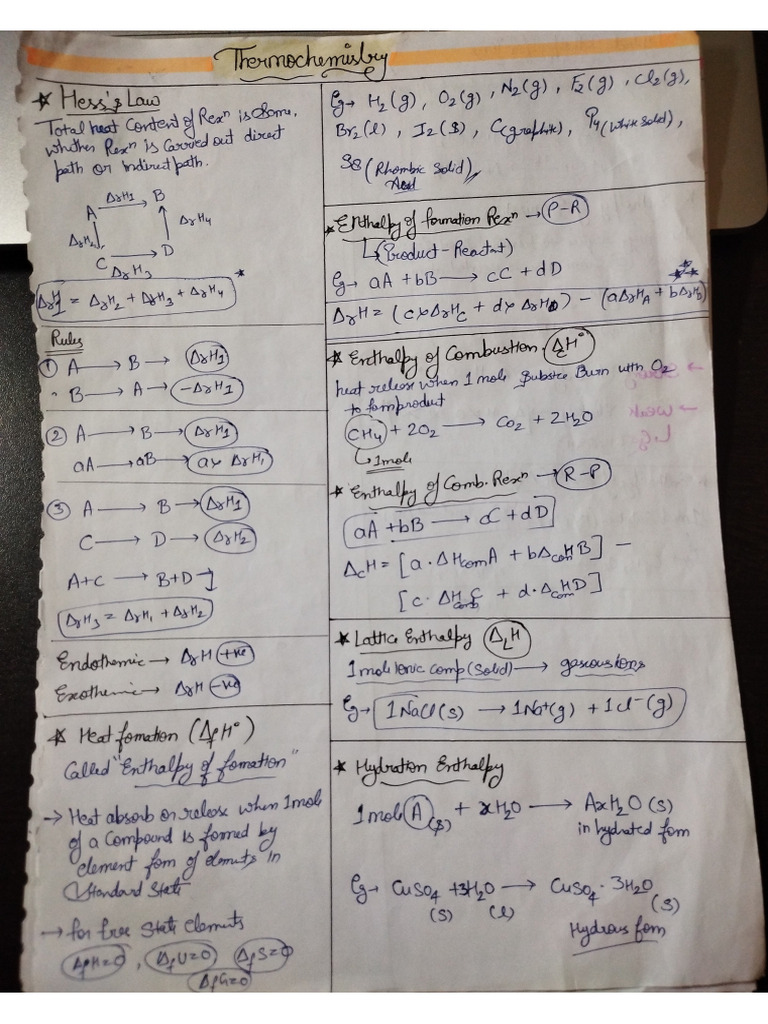 Thermochemistry
★ Hess's Law
Total heat Content of Rexⁿ is Same,
whether Rexⁿ is Carried out direct
path or indirect path.
A ΔrH1→ B
ΔrH2 ↓ ↑ ΔrH4
C → D
ΔrH3
ΔrH1 = ΔrH2 + ΔrH3 + ΔrH4 *
Rules
① A → B → ΔrH1
· B → A → -ΔrH1
② A → B → ΔrH1
aA → aB → a x ΔrH1
③ A → B → ΔrH1
C → D → ΔrH2
A+C → B+D
ΔrH3 = ΔrH1 + ΔrH2
Endothemic → ΔrH +ve
Exothemic → ΔrH -ve
★ Heat fomation (ΔfH°)
Called "Enthalpy of fomation"
→ Heat absorb or release when 1mole
of a Compound is formed by
element fom of elemnts in
Standard State
→ for free State Elements
ΔfH=0, ΔfU=0 ΔfS=0
ΔfG=0
Eg→ H2(g), O2(g), N2(g), F2(g), Cl2(g),
Br2(l), I2(s), C(graphite), P4(White Solid),
S8(Rhombic Solid)
★ Enthalpy of formation Rexⁿ → P-R
↳(Product-Reactant)
Eg→ aA + bB → cC + dD
ΔrH = (c x ΔrHC + d x ΔrHD) - (aΔrHA + bΔrHB)
★ Enthalpy of Combustion. ΔcH°
heat release when 1mole Substce Burn with O2
to fomproduct
CH4 + 2O2 → CO2 + 2H2O
↳1mole
★ Enthalpy of Comb. Rexⁿ → R-P
aA + bB → cC + dD
ΔcH = [a. ΔHcomA + bΔcomHB] -
[c. ΔHcombC + d.ΔcomHD]
★ Lattice Enthalpy ΔLH
1mole Ionic comp(Solid) → gaseousions
Eg→ 1NaCl(s) → 1Na⁺(g) + 1Cl⁻(g)
★ Hydration Enthalpy
1mole A(s) + xH2O → AxH2O(s)
in hydrated fom
Eg→ CuSO4 + 3H2O → CuSO4·3H2O
(s) (l) (s)
Hydrous fom